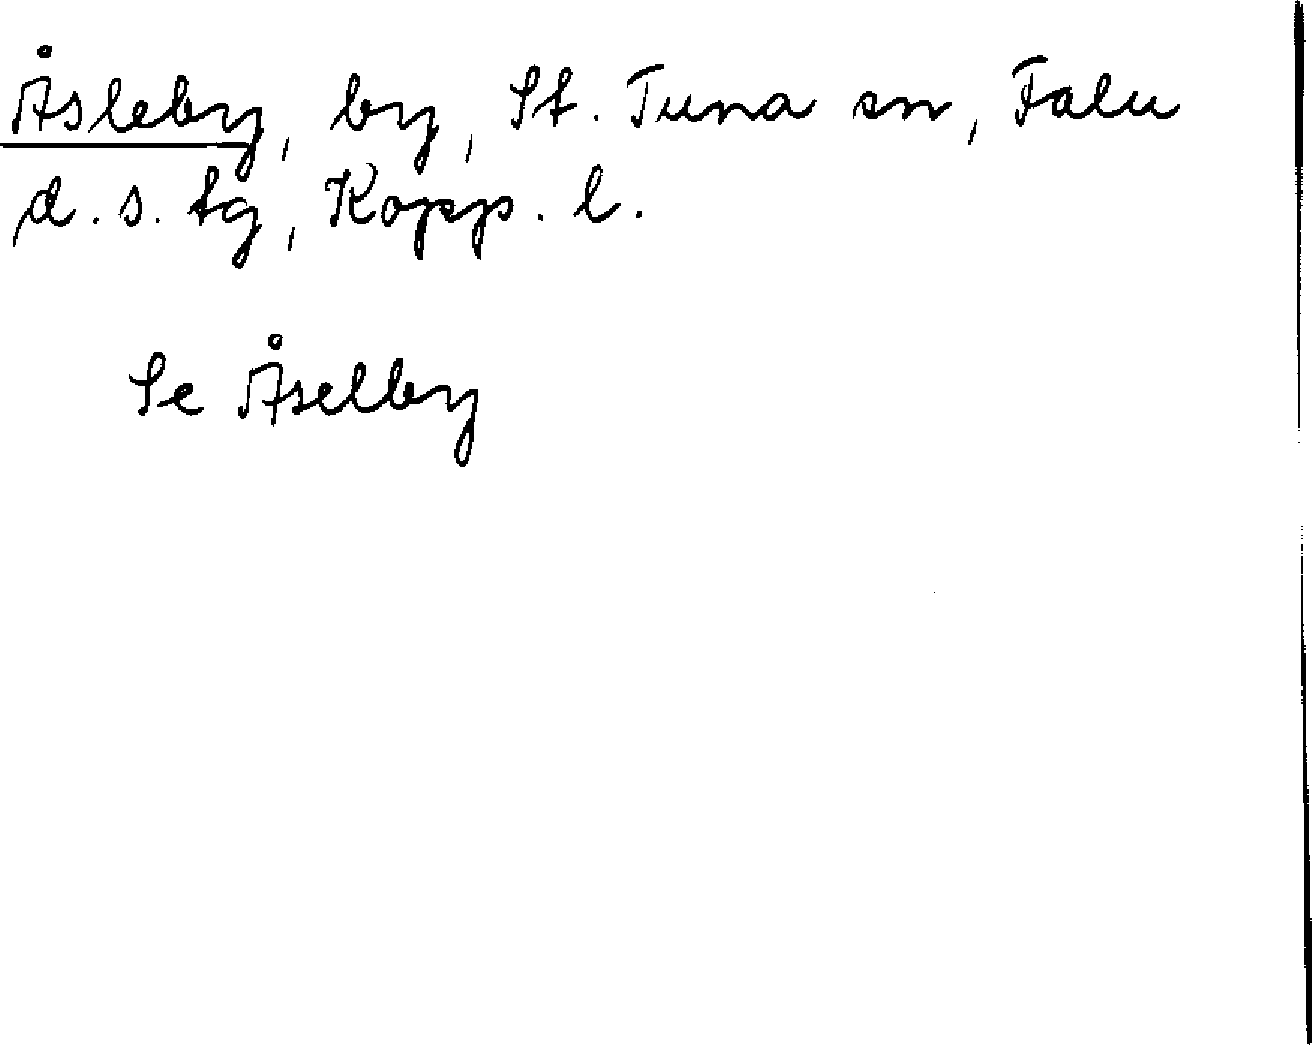 Åsleby, by, St. Tuna sn, Falu
d. s. tg, Kopp. l.
Se Åselby